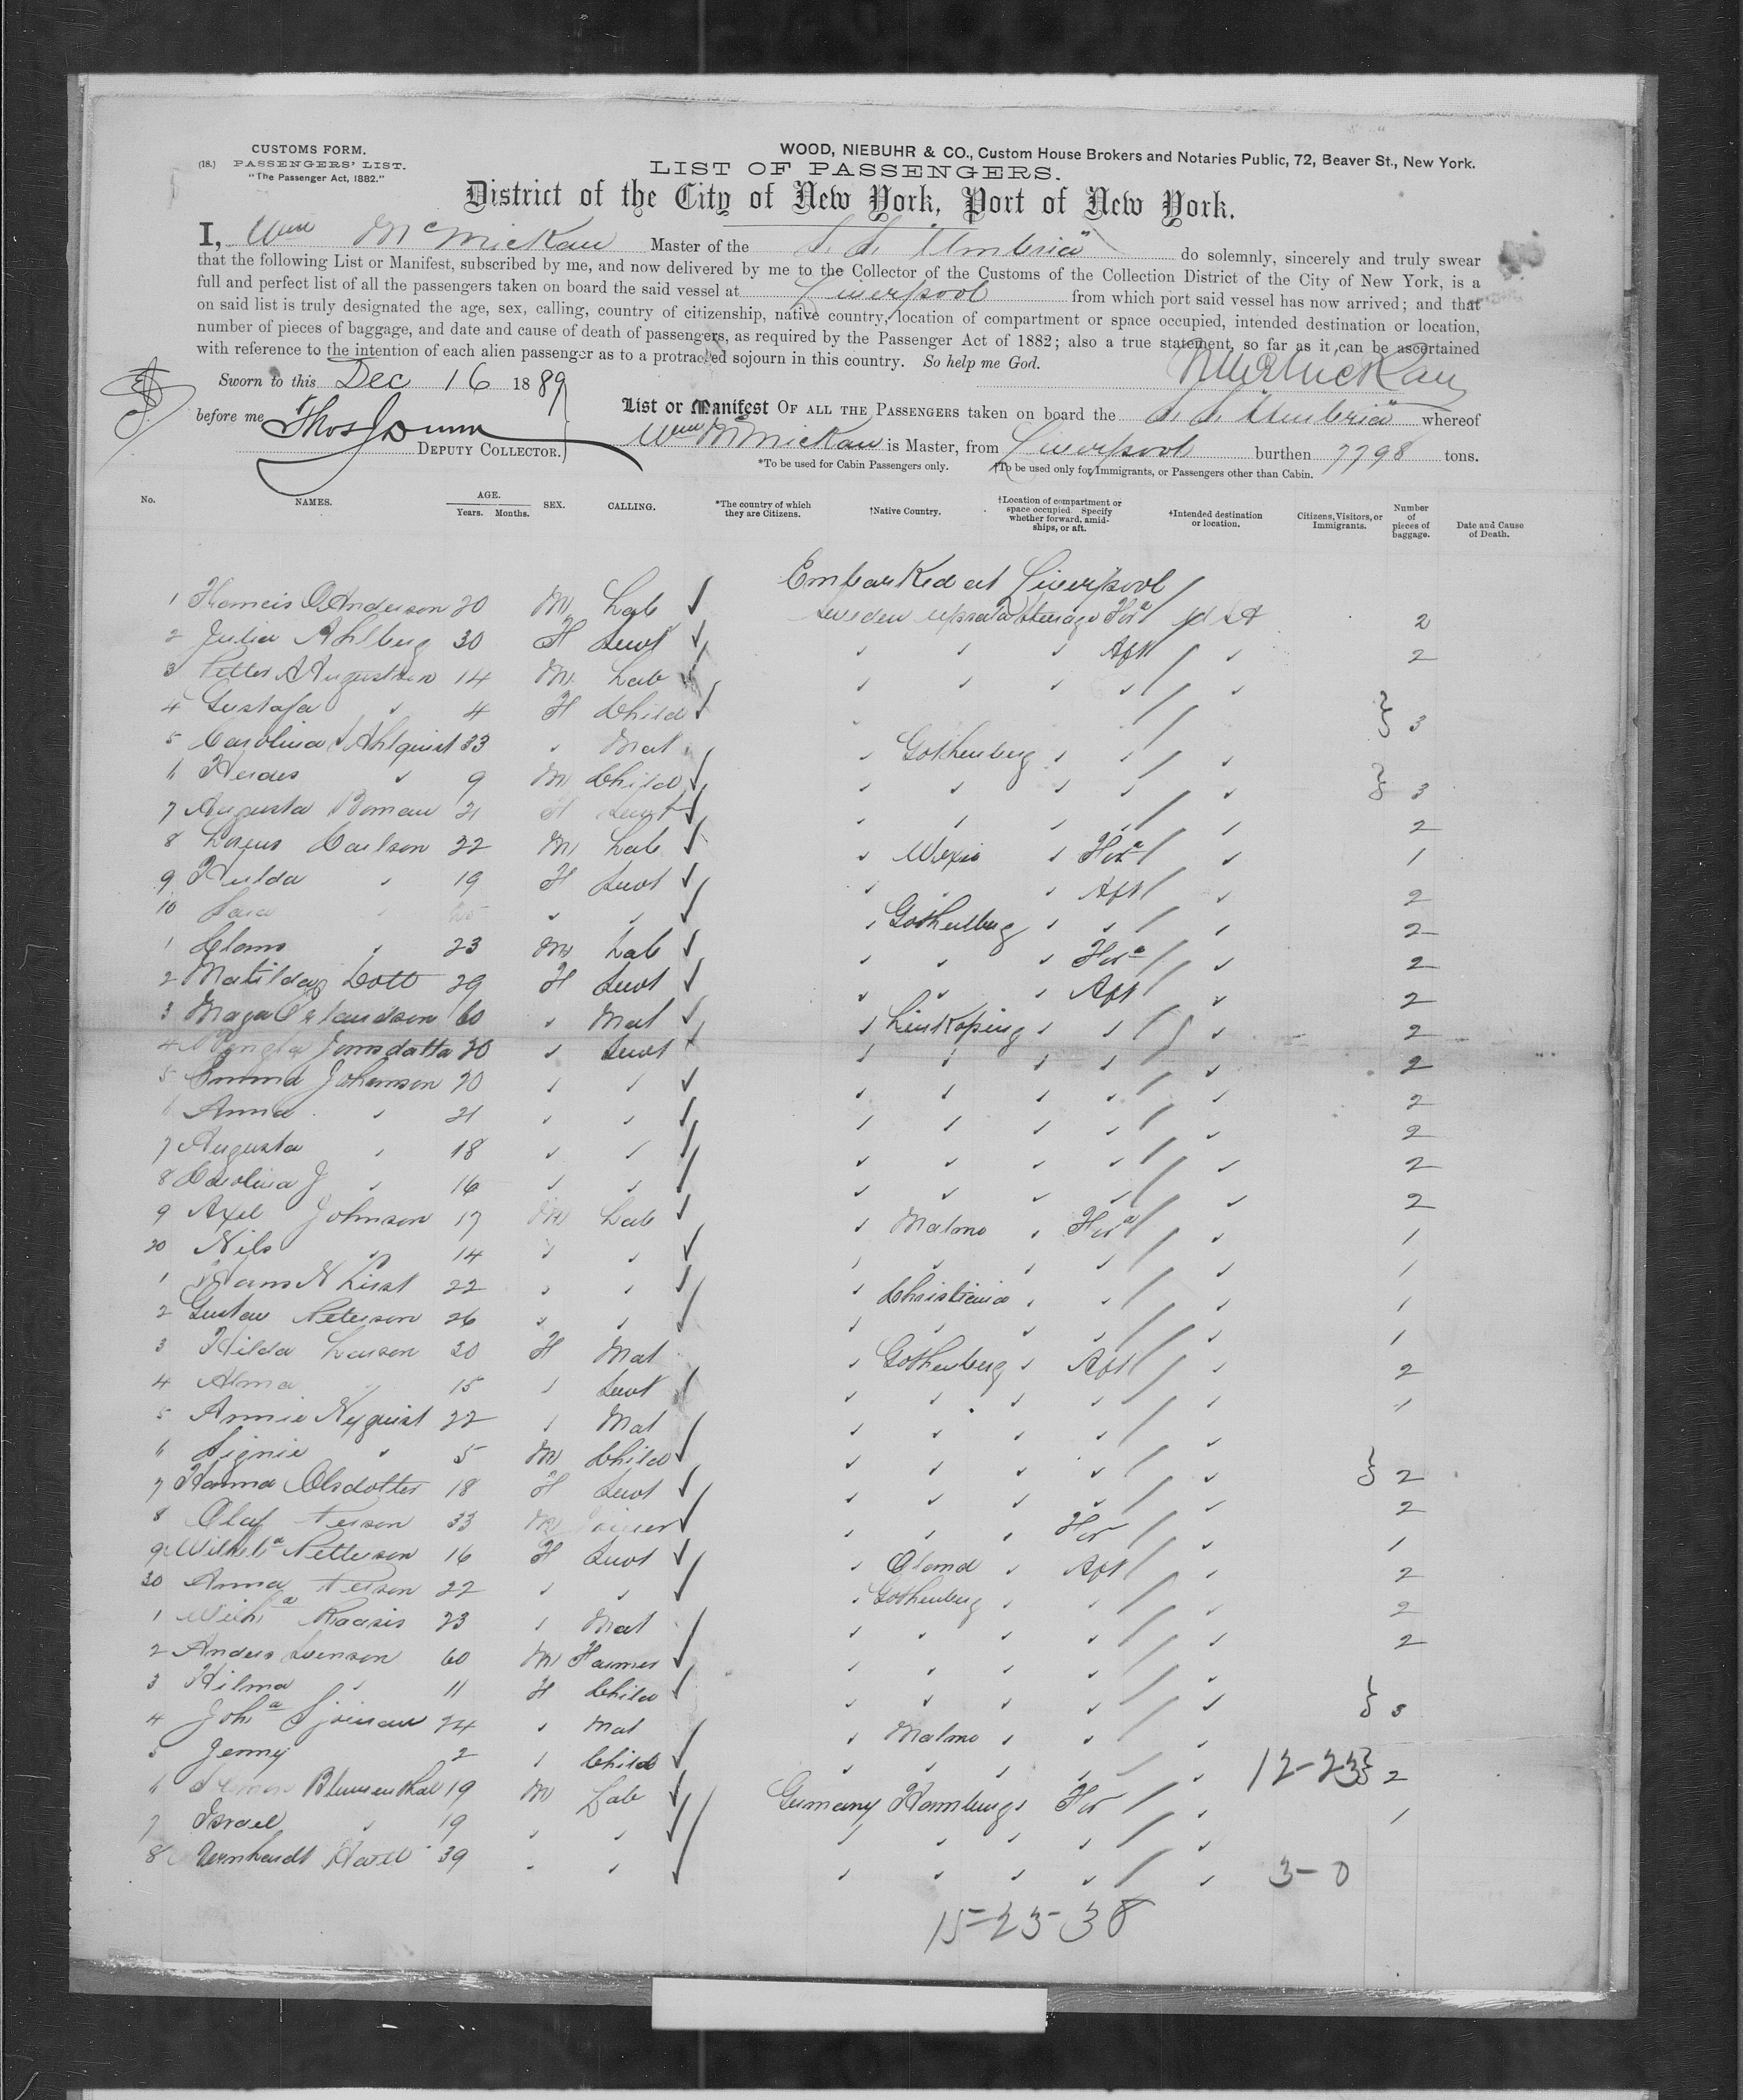 CUSTOMS FORM.
(18.) PASSENGERS' LIST.
"The Passenger Act, 1882."
WOOD, NIEBUHR & CO., Custom House Brokers and Notaries Public, 72, Beaver St., New York.
LIST OF PASSENGERS.
District of the City of New York, Port of New York.
I, Wm McMickan Master of the S. S. "Umbria" do solemnly, sincerely and truly swear
that the following List or Manifest, subscribed by me, and now delivered by me to the Collector of the Customs of the Collection District of the City of New York, is a
full and perfect list of all the passengers taken on board the said vessel at Liverpool from which port said vessel has now arrived; and that
on said list is truly designated the age, sex, calling, country of citizenship, native country, location of compartment or space occupied, intended destination or location,
number of pieces of baggage, and date and cause of death of passengers, as required by the Passenger Act of 1882; also a true statement, so far as it can be ascertained
with reference to the intention of each alien passenger as to a protracted sojourn in this country. So help me God.
Wm McMickan
Sworn to this Dec 16 1889
before me Thos Dunn
DEPUTY COLLECTOR.
List or Manifest OF ALL THE PASSENGERS taken on board the S. S. "Umbria" whereof
Wm McMickan is Master, from Liverpool burthen 7798 tons.
*To be used for Cabin Passengers only. †To be used only for Immigrants, or Passengers other than Cabin.
No. NAMES. AGE. Years. Months. SEX. CALLING. *The country of which they are Citizens. †Native Country. †Location of compartment or space occupied. Specify whether forward, amidships, or aft. †Intended destination or location. Citizens, Visitors, or Immigrants. Number of pieces of baggage. Date and Cause of Death.
Embarked at Liverpool
1 Anderson 20 M Lab Sweden Upsala Steerage For 2
2 Julia Ahlberg 30 F Servt " " " Aft " 2
3 14 M Lab " " " " "
4 Gustafa " 4 F Child " 3
5 Carolina Ahlquist 33 " Mat " Gothenberg " " "
6 " 9 M Child " " " " " 3
7 Augusta Boman 21 F Servt " " " " " 2
8 Carlson 22 M Lab " Wexio " For " 1
9 Hulda " 19 F Servt " " " Aft " 2
10 " " " " Gothenberg " " " 2
1 " 23 M Lab " " " For " 2
2 Matilda 29 F Servt " " " Aft " 2
3 60 " Mat " Linkoping " " " 2
4 Jonsdatta 20 " Servt " " " " " 2
5 Emma Johanson 20 " " " " " " " 2
6 Anna " 21 " " " " " " " 2
7 Augusta " 18 " " " " " " " 2
8 Carolina J " 16 " " " " " " " 2
9 Axel Johnson 17 M Lab " Malmo " For " 1
20 Nils " 14 " " " " " " " 1
1 22 " " " Christiania " " " 1
2 Gustav Peterson 26 " " " " " " " 1
3 Hilda Larson 30 F Mat " Gothenberg " Aft " 2
4 Alma " 15 " Servt " " " " " "
5 Annie Nyquist 22 " Mat " " " " "
6 Signie " 5 M Child " " " " " 2
7 Hanna Olsdotter 18 F Servt " " " " " 2
8 Olaf 33 M " " " For " 1
9 Petterson 16 F Servt " " Aft " 2
30 Anna 22 " " " Gothenberg " " " 2
1 23 " Mat " " " " " 2
2 Anders Svenson 60 M Farmer " " " " "
3 Hilma " 11 F Child " " " " " 3
4 24 " Mat " Malmo " " "
5 Jenny 2 " Child " " " " " 12-23 2
6 Blumenthal 19 M Lab Germany Hamburg " For " 1
7 Israel " 19 " " " " " " "
8 39 " " " " " " " 3-0
15-23-38